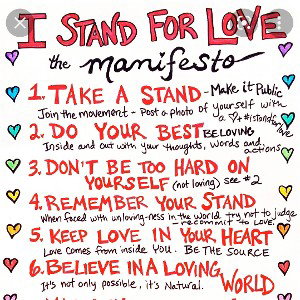 I STAND FOR LOVE
the manifesto
1. TAKE A STAND - Make it Public
Join the movement - Post a photo of yourself with
a ♡ + #istandforlove
2. DO YOUR BEST BE LOVING
Inside and out with your thoughts, words and actions
3. DON'T BE TOO HARD ON
YOURSELF (not loving) see #2
4. REMEMBER YOUR STAND
When faced with unloving-ness in the world try not to judge
- recommit to love.
5. KEEP LOVE IN YOUR HEART
Love comes from inside YOU. BE THE SOURCE
6. BELIEVE IN A LOVING WORLD
It's not only possible, it's Natural.